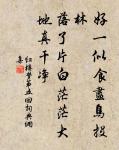 好一似食盡鳥投
林
落了片白茫茫大
地真干净
红樓夢第五回詞